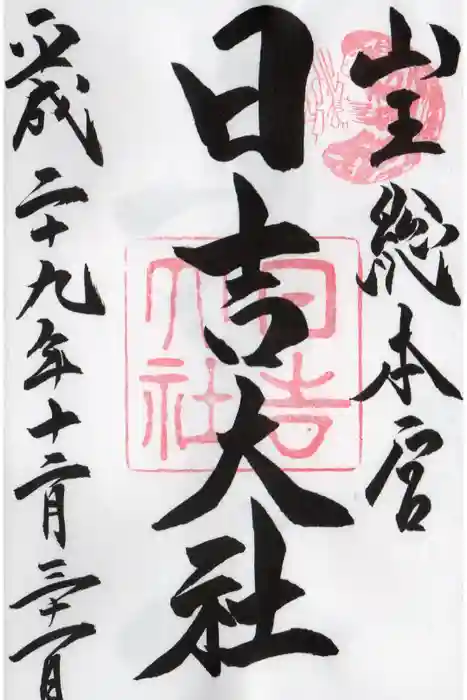 山王総本宮
日吉大社
平成二十九年十二月三十一日
日吉大社